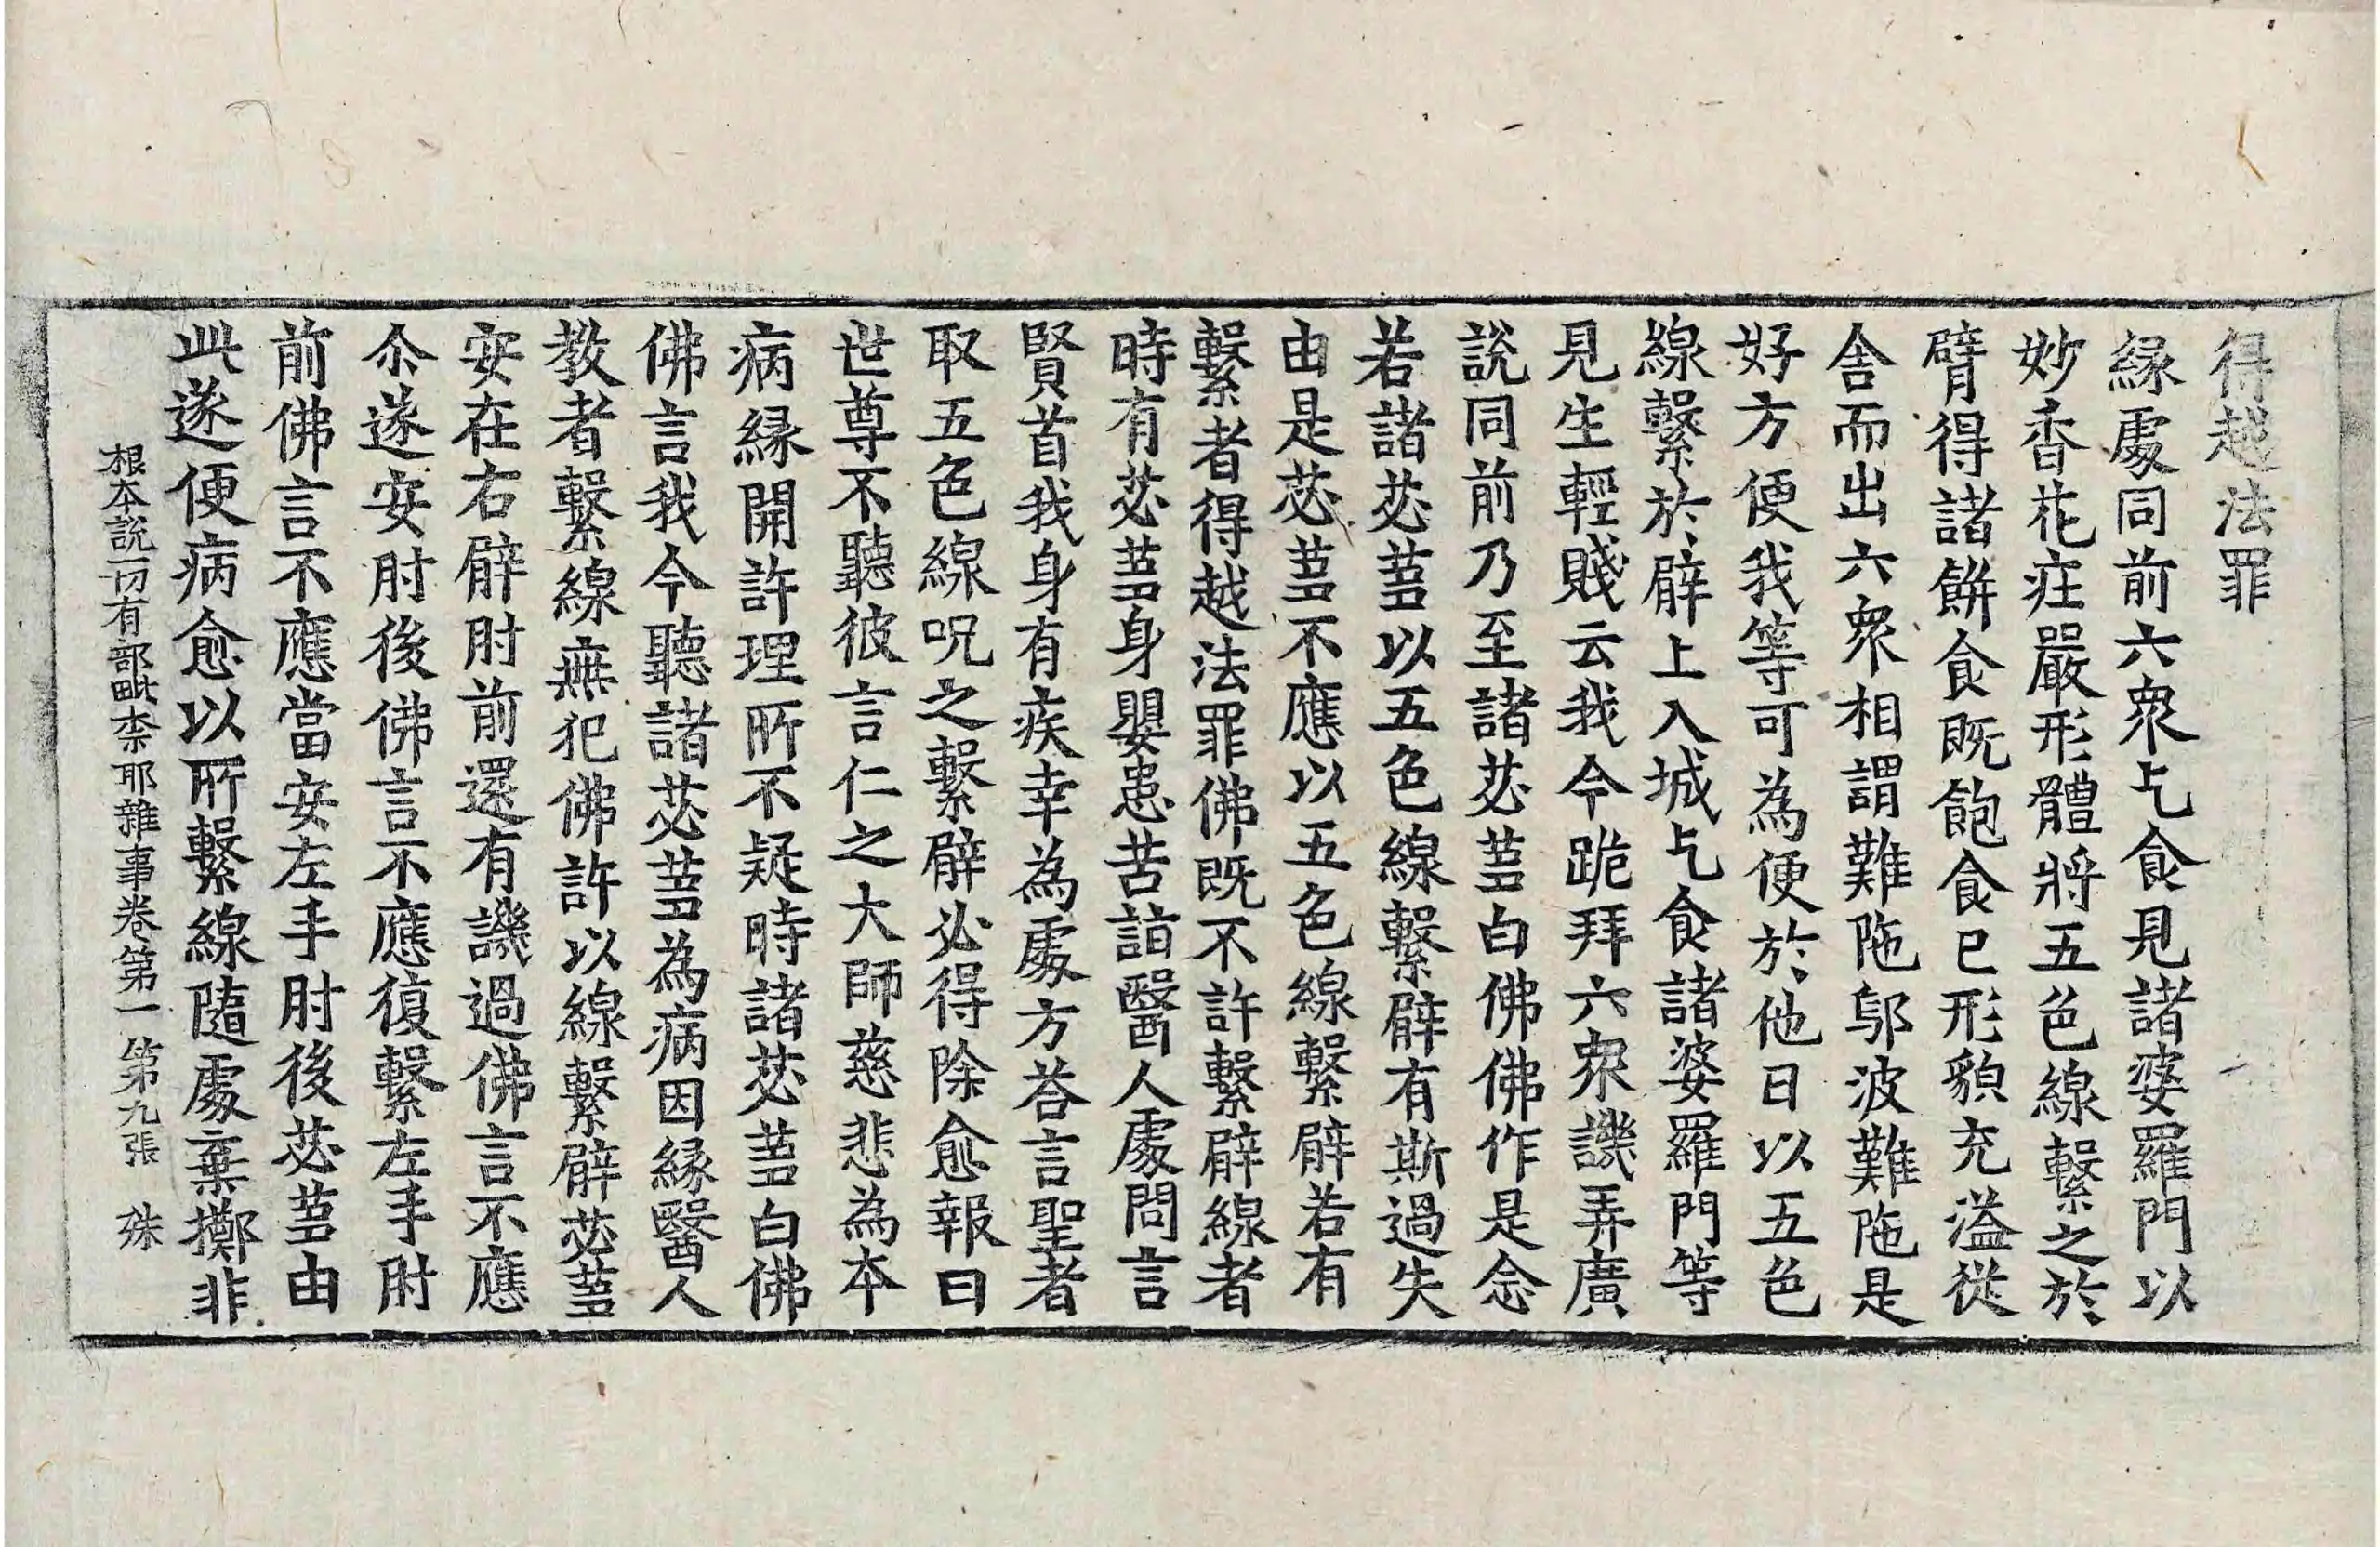 得越法罪
緣處同前六衆乞食見諸婆羅門以
妙香花莊嚴形體將五色線繫之於
臂得諸餠食既飽食已形貌充溢從
舍而出六衆相謂難陁鄔波難陁是
好方便我等可為便於他日以五色
線繫於臂上入城乞食諸婆羅門等
見生輕賤云我今跪拜六衆譏弄廣
說同前乃至諸苾芻白佛佛作是念
若諸苾芻以五色線繫臂有斯過失
由是苾芻不應以五色線繫臂若有
繫者得越法罪佛既不許繫臂線者
時有苾芻身嬰患苦詣醫人處問言
賢首我身有疾幸為處方荅言聖者
取五色線呪之繫臂必得除愈報曰
世尊不聽彼言仁之大師慈悲為本
病緣開許理所不疑時諸苾芻白佛
佛言我今聽諸苾芻為病因緣醫人
教者繫線無犯佛許以線繫臂苾芻
安在右臂肘前還有譏過佛言不應
尒遂安肘後佛言不應復繫左手肘
前佛言不應當安左手肘後苾芻由
此遂便病愈以所繫線隨處棄擲非
根本說一切有部毗柰耶雜事卷第一 第九張 殊